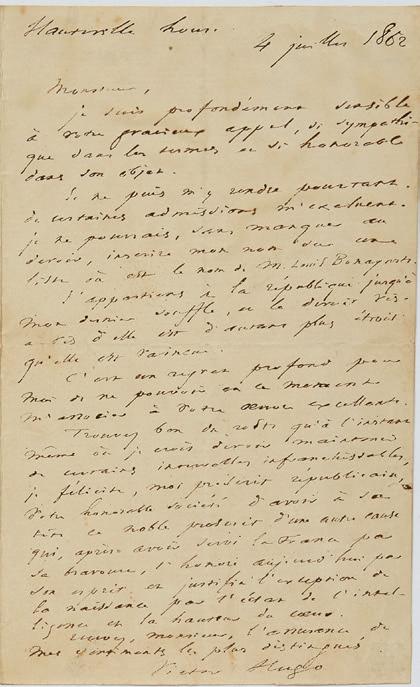 Hauteville house.
4 juillet 1862
Monsieur,
je suis profondément sensible
à votre gracieux appel, si sympathi-
que dans les termes et si honorable
dans son objet.
Je ne puis m'y rendre pourtant.
de certaines admissions m'excluent.
je ne pourrais, sans manquer au
devoir, inscrire mon nom sur une
liste où est le nom de M. Louis Bonaparte.
J'appartiens à la république jusqu'à
mon dernier souffle, et le devoir vis-
à-vis d'elle est d'autant plus étroit
qu'elle est vaincue.
C'est un regret profond pour
moi de ne pouvoir en ce moment
m'associer à votre œuvre excellente.
Trouvez bon du reste qu'à l'instant
même où je crois devoir maintenir
de certains intervalles infranchissables,
je félicite, moi proscrit républicain,
votre honorable société d'avoir à sa
tête ce noble proscrit d'une autre cause
qui, après avoir servi la France par
sa bravoure, l'honore aujourd'hui par
son esprit et justifie l'exception de
la naissance par l'éclat de l'intel-
ligence et la hauteur du cœur.
Recevez, monsieur, l'assurance de
mes sentiments les plus distingués.
Victor Hugo